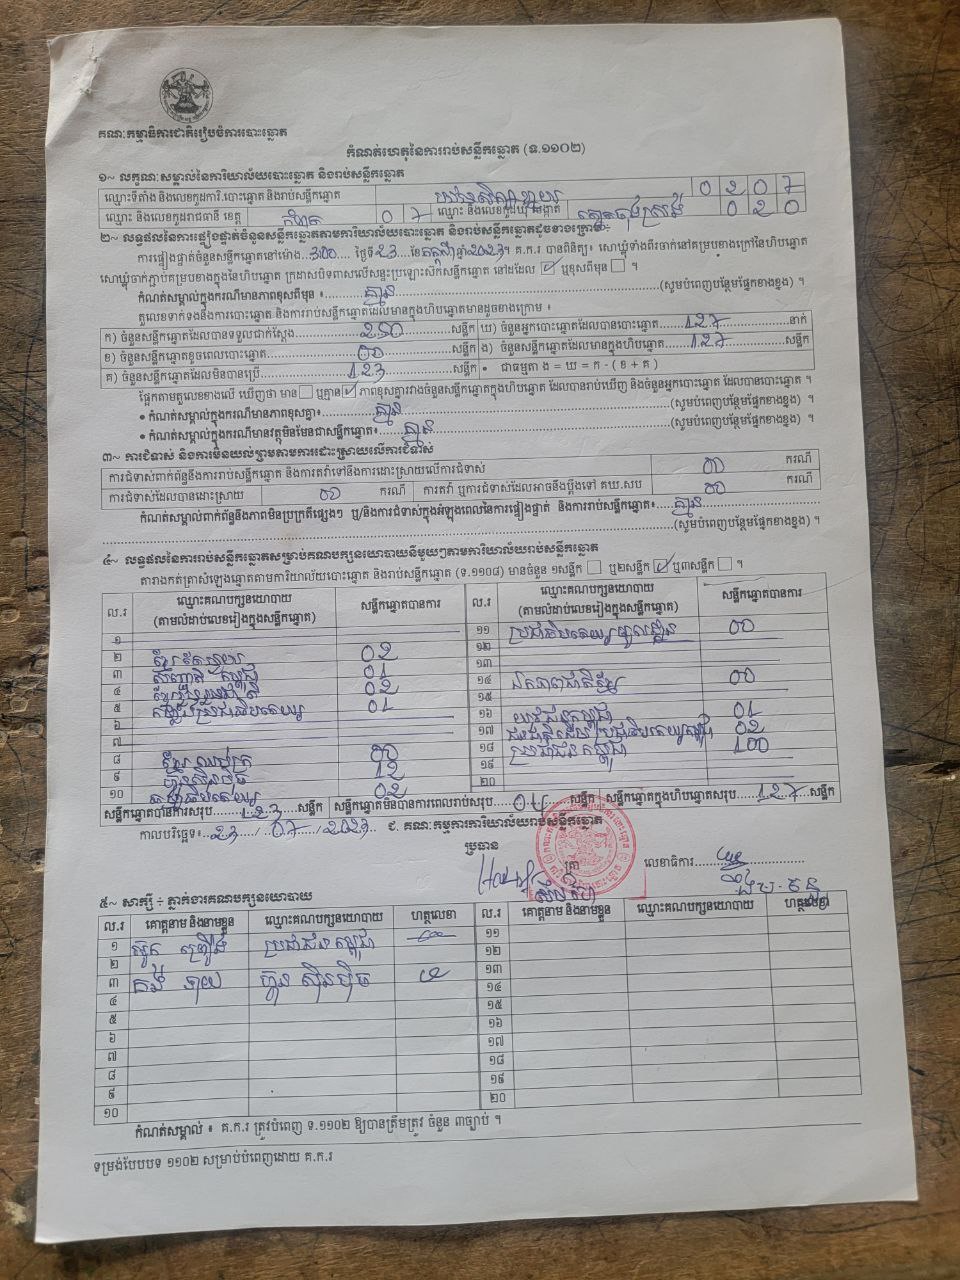 គណៈកម្មាធិការជាតិរៀបចំការបោះឆ្នោត
កំណត់ហេតុនៃការរាប់សន្លឹកឆ្នោត (ទ.១១០២)
១~ លក្ខណៈសម្គាល់នៃការិយាល័យបោះឆ្នោត និងរាប់សន្លឹកឆ្នោត
ឈ្មោះទីតាំង និងលេខកូដការិ.បោះឆ្នោត និងរាប់សន្លឹកឆ្នោត 0 2 0 7
ឈ្មោះ និងលេខកូដរាជធានី ខេត្ត កំពត 0 7 ឈ្មោះ និងលេខកូដឃុំ សង្កាត់ 0 2 0
២~ លទ្ធផលនៃការផ្ទៀងផ្ទាត់ចំនួនសន្លឹកឆ្នោតតាមការិយាល័យបោះឆ្នោត និងរាប់សន្លឹកឆ្នោតដូចខាងក្រោម÷
ការផ្ទៀងផ្ទាត់ចំនួនសន្លឹកឆ្នោតនៅម៉ោង..3:00.... ថ្ងៃទី.23...ខែ.កក្កដា.ឆ្នាំ.2023។ គ.ក.រ បានពិនិត្យ៖ សោឃ្មុំទាំងពីរចាក់នៅគម្របខាងក្រៅនៃហិបឆ្នោត
សោឃ្មុំចាក់ភ្ជាប់គម្របខាងក្នុងនៃហិបឆ្នោត ក្រដាសបិទពាសលើសន្ទះប្រឡោះស៊ិកសន្លឹកឆ្នោត នៅដដែល ☑ ឬខុសពីមុន ☐ ។
កំណត់សម្គាល់ក្នុងករណីមានភាពខុសពីមុន ៖ គ្មាន (សូមបំពេញបន្ថែមផ្នែកខាងខ្នង) ។
តួលេខទាក់ទងនឹងការបោះឆ្នោត និងការរាប់សន្លឹកឆ្នោតដែលមានក្នុងហិបឆ្នោតមានដូចខាងក្រោម ៖
ក) ចំនួនសន្លឹកឆ្នោតដែលបានទទួលជាក់ស្តែង 250 សន្លឹក ឃ) ចំនួនអ្នកបោះឆ្នោតដែលបានបោះឆ្នោត 127 នាក់
ខ) ចំនួនសន្លឹកឆ្នោតខូចពេលបោះឆ្នោត 00 សន្លឹក ង) ចំនួនសន្លឹកឆ្នោតដែលមានក្នុងហិបឆ្នោត 127 សន្លឹក
គ) ចំនួនសន្លឹកឆ្នោតដែលមិនបានប្រើ 123 សន្លឹក • ជាធម្មតា ង = ឃ = ក - ( ខ + គ )
ផ្អែកតាមតួលេខខាងលើ ឃើញថា មាន ☐ ឬគ្មាន ☑ ភាពខុសគ្នារវាងចំនួនសន្លឹកឆ្នោតក្នុងហិបឆ្នោត ដែលបានរាប់ឃើញ និងចំនួនអ្នកបោះឆ្នោត ដែលបានបោះឆ្នោត ។
• កំណត់សម្គាល់ក្នុងករណីមានភាពខុសគ្នា៖ គ្មាន (សូមបំពេញបន្ថែមផ្នែកខាងខ្នង) ។
• កំណត់សម្គាល់ក្នុងករណីមានវត្ថុមិនមែនជាសន្លឹកឆ្នោត៖ គ្មាន (សូមបំពេញបន្ថែមផ្នែកខាងខ្នង) ។
៣~ ការជំទាស់ និងការមិនយល់ព្រមតាមការដោះស្រាយលើការជំទាស់
ការជំទាស់ពាក់ព័ន្ធនឹងការរាប់សន្លឹកឆ្នោត និងការតវ៉ាទៅនឹងការដោះស្រាយលើការជំទាស់ 00 ករណី
ការជំទាស់ដែលបានដោះស្រាយ 00 ករណី ការតវ៉ា ឬការជំទាស់ដែលអាចនឹងប្តឹងទៅ គឃ.សប 00 ករណី
កំណត់សម្គាល់ពាក់ព័ន្ធនឹងភាពមិនប្រក្រតីផ្សេងៗ ឬ/និងការជំទាស់ក្នុងអំឡុងពេលនៃការផ្ទៀងផ្ទាត់ និងការរាប់សន្លឹកឆ្នោត៖ គ្មាន
(សូមបំពេញបន្ថែមផ្នែកខាងខ្នង) ។
៤~ លទ្ធផលនៃការរាប់សន្លឹកឆ្នោតសម្រាប់គណបក្សនយោបាយនីមួយៗតាមការិយាល័យរាប់សន្លឹកឆ្នោត
តារាងកត់ត្រាសំឡេងឆ្នោតតាមការិយាល័យបោះឆ្នោត និងរាប់សន្លឹកឆ្នោត (ទ.១១០៨) មានចំនួន ១សន្លឹក ☐ ឬ២សន្លឹក ☑ ឬ៣សន្លឹក ☐ ។
ល.រ ឈ្មោះគណបក្សនយោបាយ (តាមលំដាប់លេខរៀងក្នុងសន្លឹកឆ្នោត) សន្លឹកឆ្នោតបានការ ល.រ ឈ្មោះគណបក្សនយោបាយ (តាមលំដាប់លេខរៀងក្នុងសន្លឹកឆ្នោត) សន្លឹកឆ្នោតបានការ
១ ១១ ប្រជាធិបតេយ្យមូលដ្ឋាន 00
២ 02 ១២
៣ 01 ១៣
៤ 02 ១៤ ឯកភាពជាតិខ្មែរ 00
៥ កម្លាំងប្រជាធិបតេយ្យ 01 ១៥
៦ ១៦ យុវជនកម្ពុជា 01
៧ ១៧ 02
៨ ខ្មែរឈប់ក្រ 00 ១៨ ប្រជាជនកម្ពុជា 100
៩ ហ្វ៊ុនស៊ិនប៉ិច 12 ១៩
១០ 02 ២០
សន្លឹកឆ្នោតបានការសរុប 123 សន្លឹក សន្លឹកឆ្នោតមិនបានការពេលរាប់សរុប 04 សន្លឹក សន្លឹកឆ្នោតក្នុងហិបឆ្នោតសរុប 127 សន្លឹក
កាលបរិច្ឆេទ៖ 23 / 07 / 2023 ជ. គណៈកម្មការការិយាល័យរាប់សន្លឹកឆ្នោត
ប្រធាន
ត្រា លេខាធិការ
៥~ សាក្សី ÷ ភ្នាក់ងារគណបក្សនយោបាយ
ល.រ គោត្តនាម និងនាមខ្លួន ឈ្មោះគណបក្សនយោបាយ ហត្ថលេខា ល.រ គោត្តនាម និងនាមខ្លួន ឈ្មោះគណបក្សនយោបាយ ហត្ថលេខា
១ ប្រជាជនកម្ពុជា ១១
២ ១២
៣ ហ្វ៊ុន ស៊ិនប៉ិច ១៣
៤ ១៤
៥ ១៥
៦ ១៦
៧ ១៧
៨ ១៨
៩ ១៩
១០ ២០
កំណត់សម្គាល់ ៖ គ.ក.រ ត្រូវបំពេញ ទ.១១០២ ឱ្យបានត្រឹមត្រូវ ចំនួន ៣ច្បាប់ ។
ទម្រង់បែបបទ ១១០២ សម្រាប់បំពេញដោយ គ.ក.រ